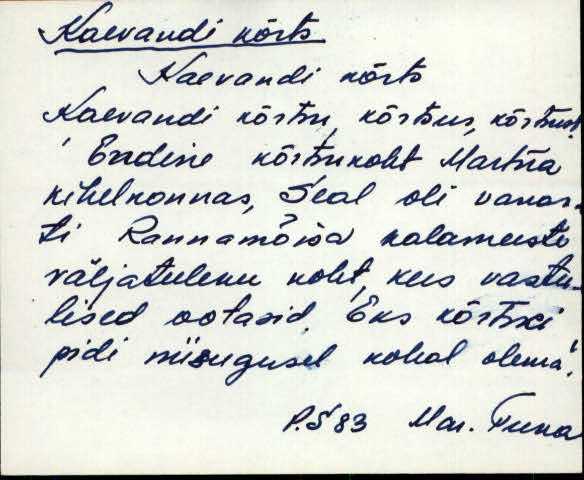 Kaevandi kõrts
Kaevandi kõrts
Kaevandi kõrtsu, kõrtsus, kõrtsust
Endine kõrtsukoht Martna
kihelkonnas, Seal oli vanas-
ti Rannamõisa kalameeste
väljatuleku koht, kus vastu-
lised ootasid, Eks kõrtski
pidi niisugusel kohal olema".
P.Š 83 Mar.